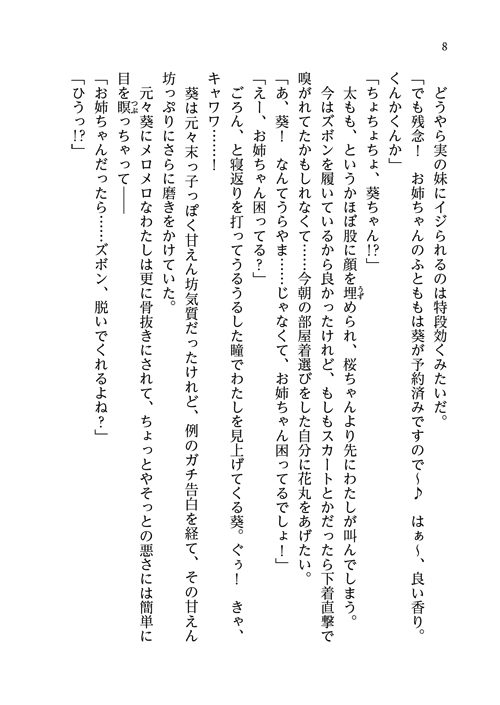 8
どうやら実の妹にイジられるのは特段効くみたいだ。
「でも残念！　お姉ちゃんのふとももは葵が予約済みですので〜♪　はぁ〜、良い香り。
くんかくんか」
「ちょちょちょ、葵ちゃん!?」
太もも、というかほぼ股に顔を埋められ、桜ちゃんより先にわたしが叫んでしまう。
今はズボンを履いているから良かったけれど、もしもスカートとかだったら下着直撃で
嗅がれてたかもしれなくて……今朝の部屋着選びをした自分に花丸をあげたい。
「あ、葵！　なんてうらやま……じゃなくて、お姉ちゃん困ってるでしょ！」
「えー、お姉ちゃん困ってる？」
ごろん、と寝返りを打ってうるうるした瞳でわたしを見上げてくる葵。ぐぅ！　きゃ、
キャワワ……！
葵は元々末っ子っぽく甘えん坊気質だったけれど、例のガチ告白を経て、その甘えん
坊っぷりにさらに磨きをかけていた。
元々葵にメロメロなわたしは更に骨抜きにされて、ちょっとやそっとの悪さには簡単に
目を瞑っちゃって――
「お姉ちゃんだったら……ズボン、脱いでくれるよね？」
「ひうっ!?」